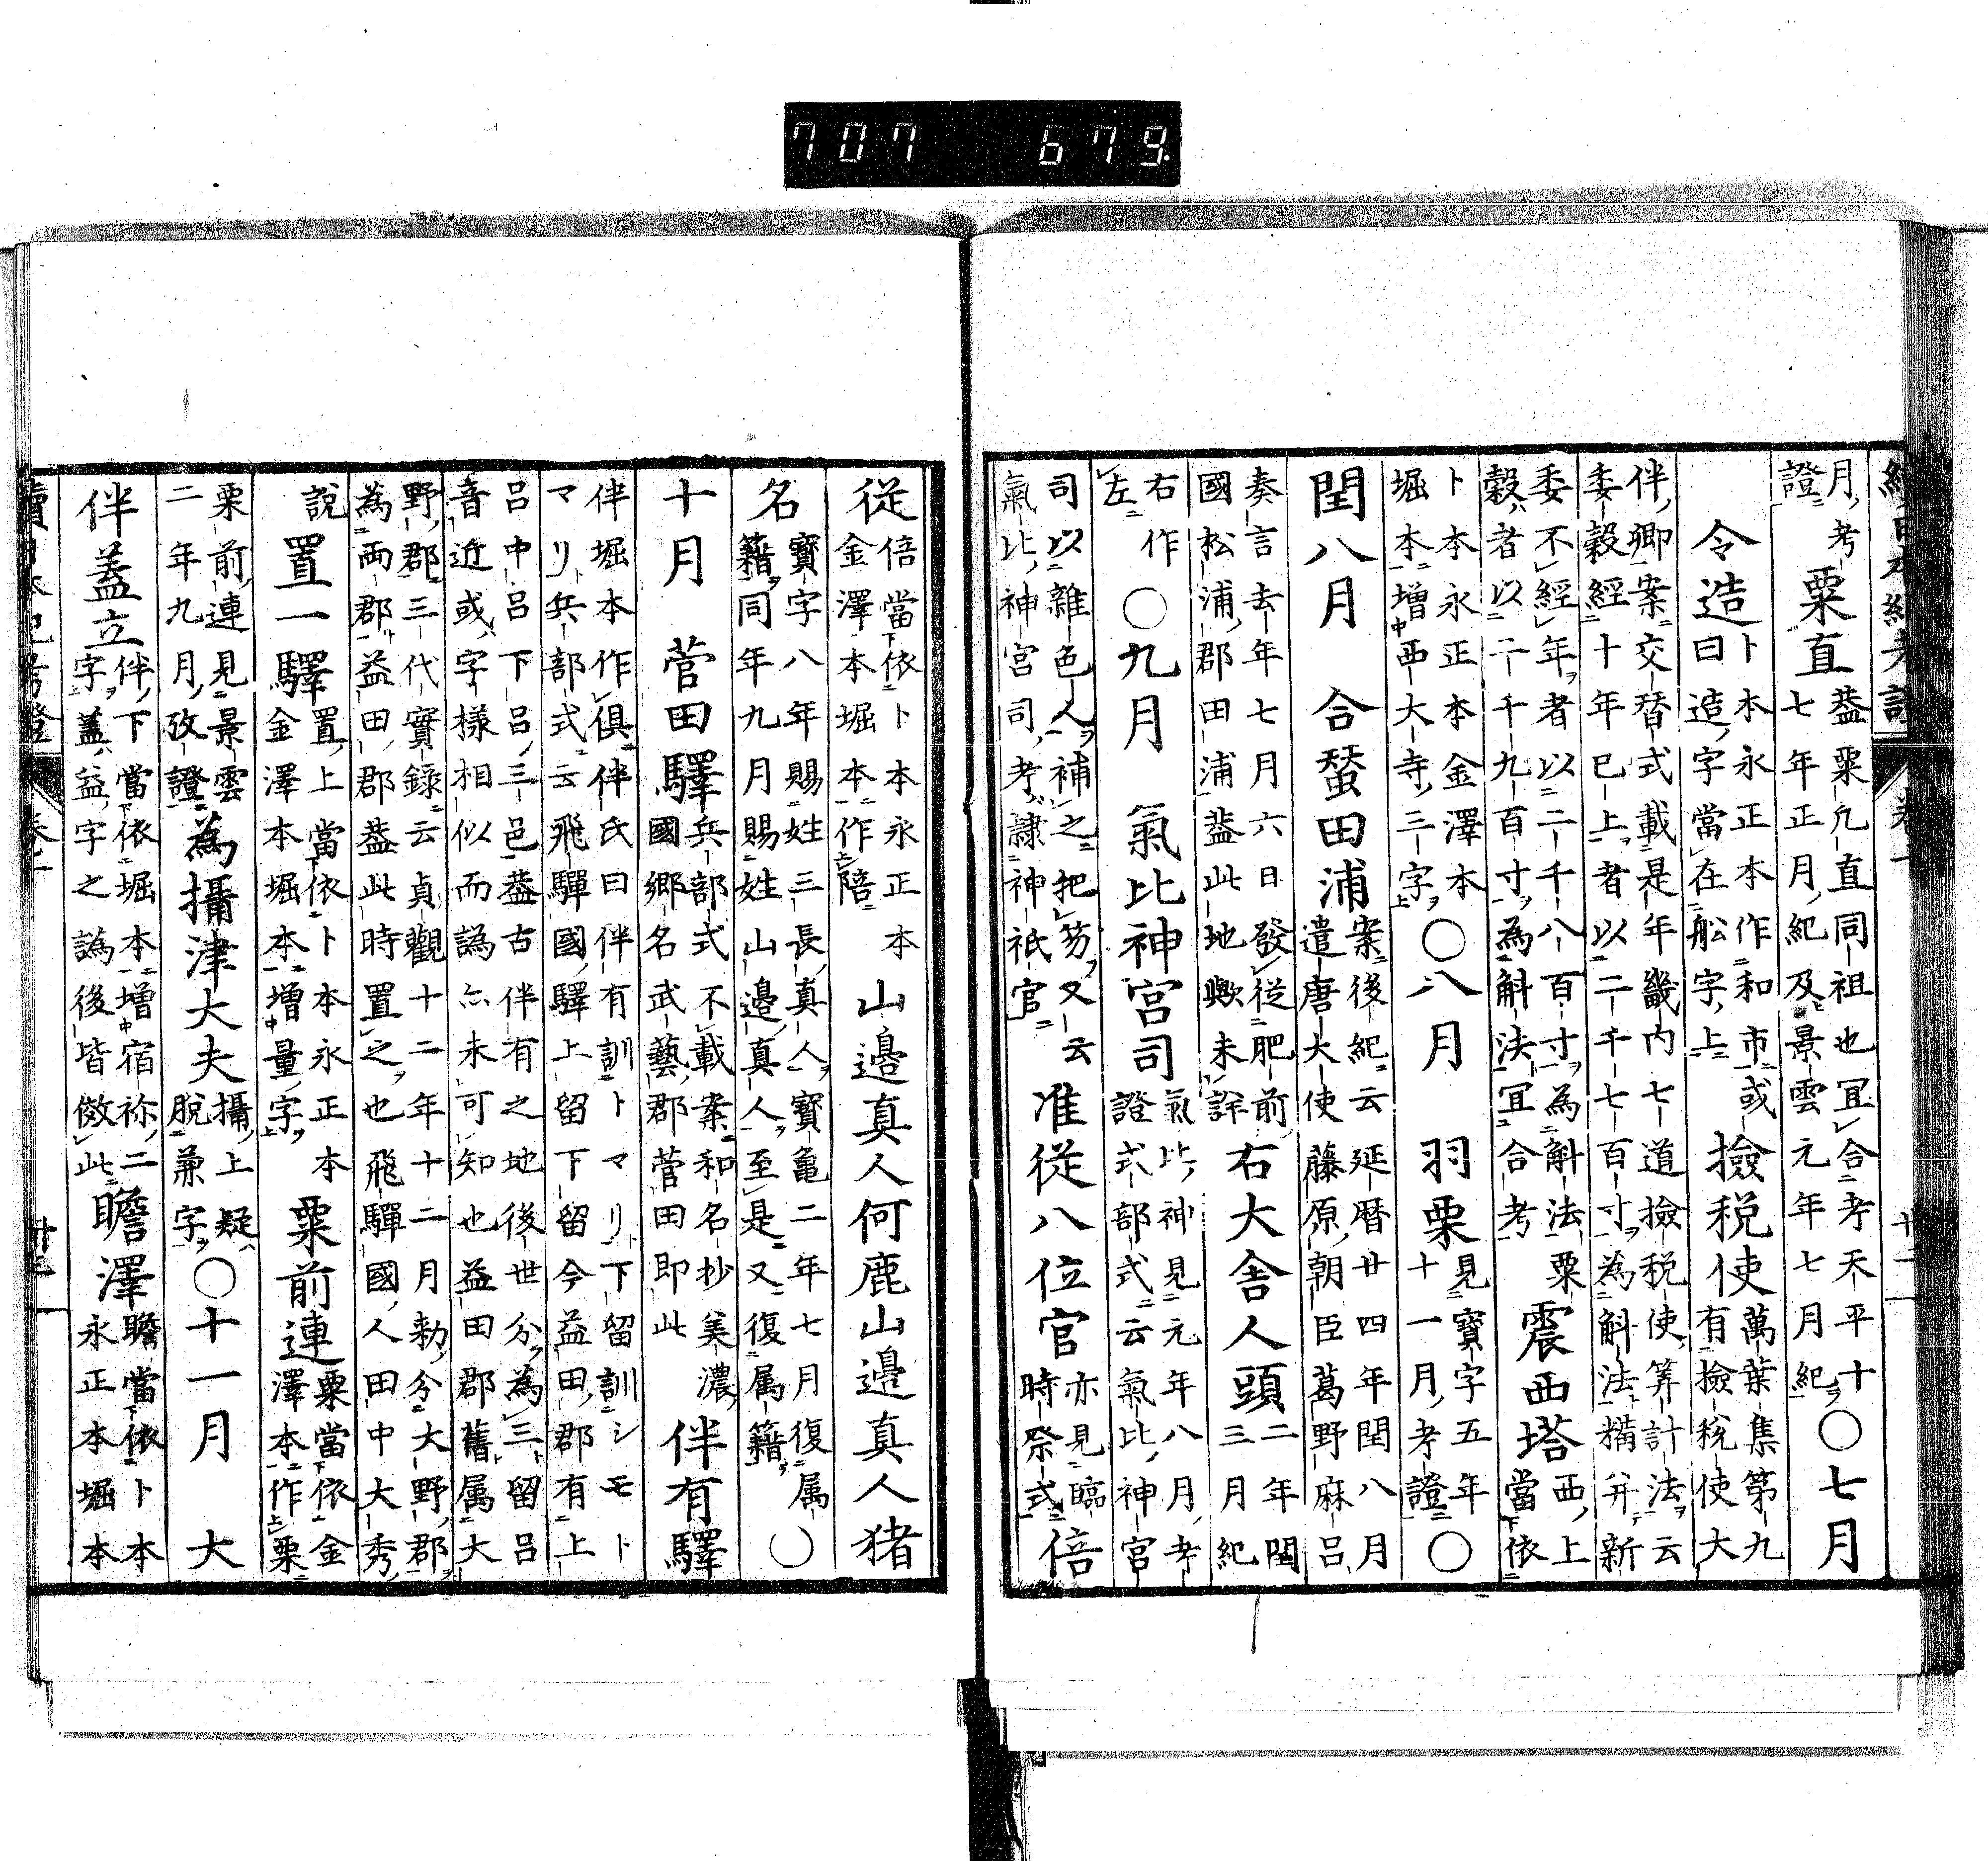 707 679.
月考
證
粟直
蓋粟凡直同祖也宜合考天平十
七年正月紀及景雲元年七月紀
〇七月
令造
卜本永正本作和市或
曰造字當在舩字上
撿税使
萬葉集第九
有撿税使大
伴卿案交替式載是年畿内七道撿税使筭計法云
委穀經十年已上者以二千七百寸為斛法糒并新
委不經年者以二千八百寸為斛法粟
穀者以二千九百寸為斛法宜合考
震西塔
西上
當依
卜本永正本金澤本
堀本增西大寺三字
〇八月
羽栗
見寶字五年
十一月考證
〇
閏八月
合蝅田浦
案後紀云延暦廿四年閏八月
遣唐大使藤原朝臣葛野麻呂
奏言去年七月六日發從肥前
國松浦郡田浦蓋此地歟未詳
右大舎人頭
二年閏
三月紀
右作
左
〇九月
氣比神宮司
氣比神見二元年八月考
證式部式云氣比神宮
司以雜色人補之把笏又云
氣比神宮司考隷神祇官
准從八位官
亦見臨
時祭式
倍
從
倍當依卜本永正本
金澤本堀本作陪
山邊真人何鹿山邊真人猪
名
寶字八年賜姓三長真人寶亀二年七月復属
籍同年九月賜姓山邊真人至是又復属籍
〇
十月
菅田驛
兵部式不載案和名抄美濃
國郷名武藝郡菅田即此
伴有驛
伴堀本作俱伴氏曰伴有訓トマリ下留訓シモト
マリ兵部式云飛驒國驛上留下留今益田郡有上
呂中呂下呂三邑蓋古伴有之地後世分為三留呂
音近或字樣相似而譌亦未可知也益田郡舊属大
野郡三代實録云貞觀十二年十二月勑分大野郡
為兩郡益田郡蓋此時置之也飛驒國人田中大秀
說
置一驛
置上當依卜本永正本
金澤本堀本增量字
粟前連
粟當依金
澤本作栗
栗前連見景雲
二年九月攷證
為攝津大夫
攝上疑
脫兼字
〇十一月
大
伴蓋立
伴下當依堀本增宿祢二
字蓋益字之譌後皆傚此
瞻澤
瞻當依卜本
永正本堀本